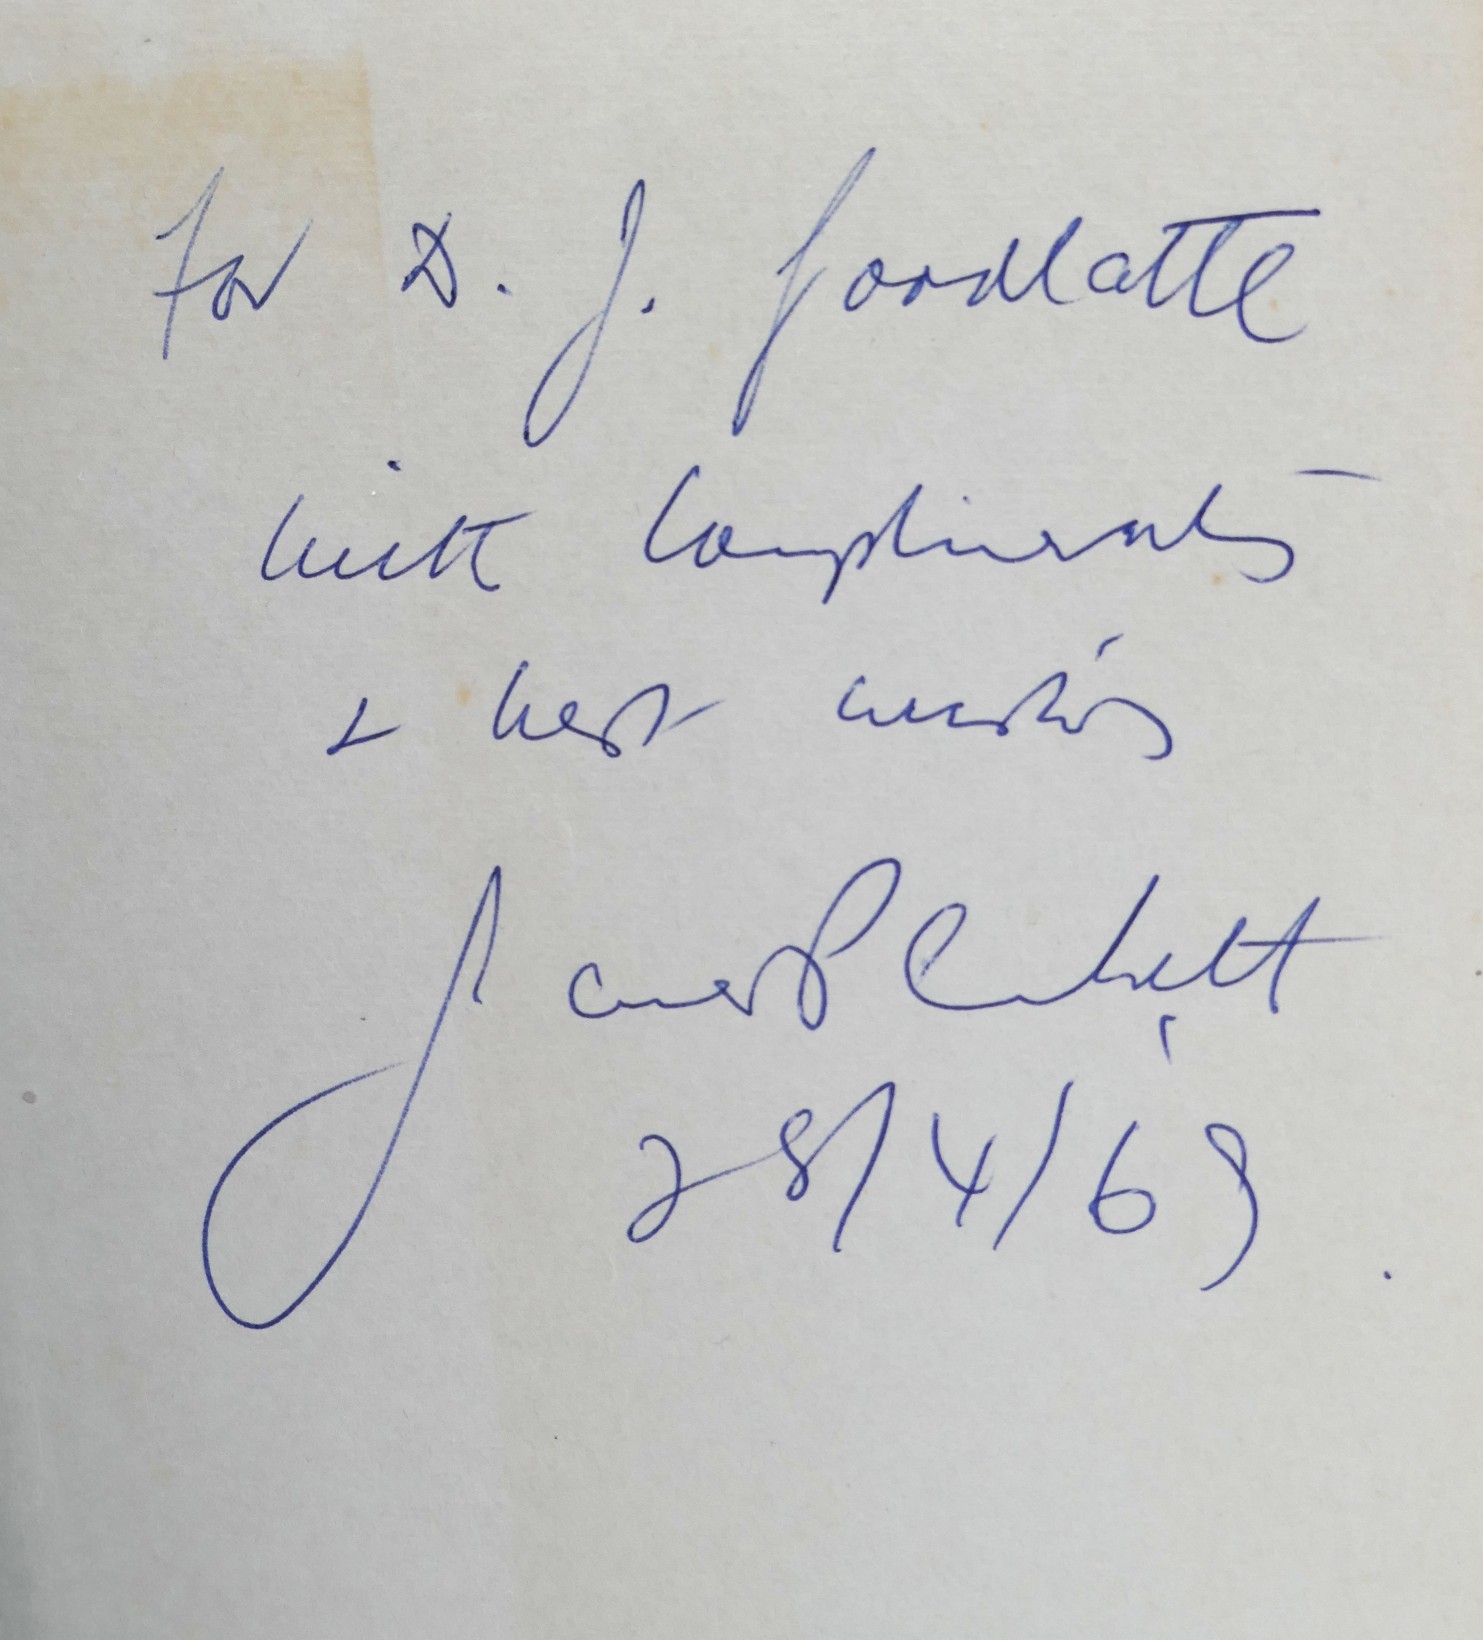 For D. J. Goodlatte
with Compliments
& best wishes
James Plunkett
28/4/69.